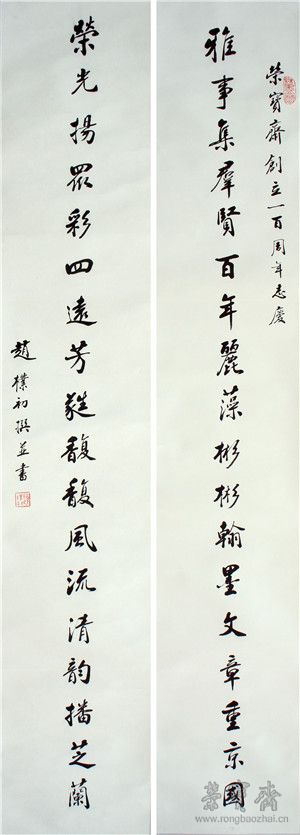 榮寶齋創立一百周年志慶
雅事集羣賢百年麗藻彬彬翰墨文章重京國
榮光揚眾彩四遠芳蕤馥馥風流清韵播芝蘭
趙樸初撰並書
榮寶齋
www.rongbaozhai.cn